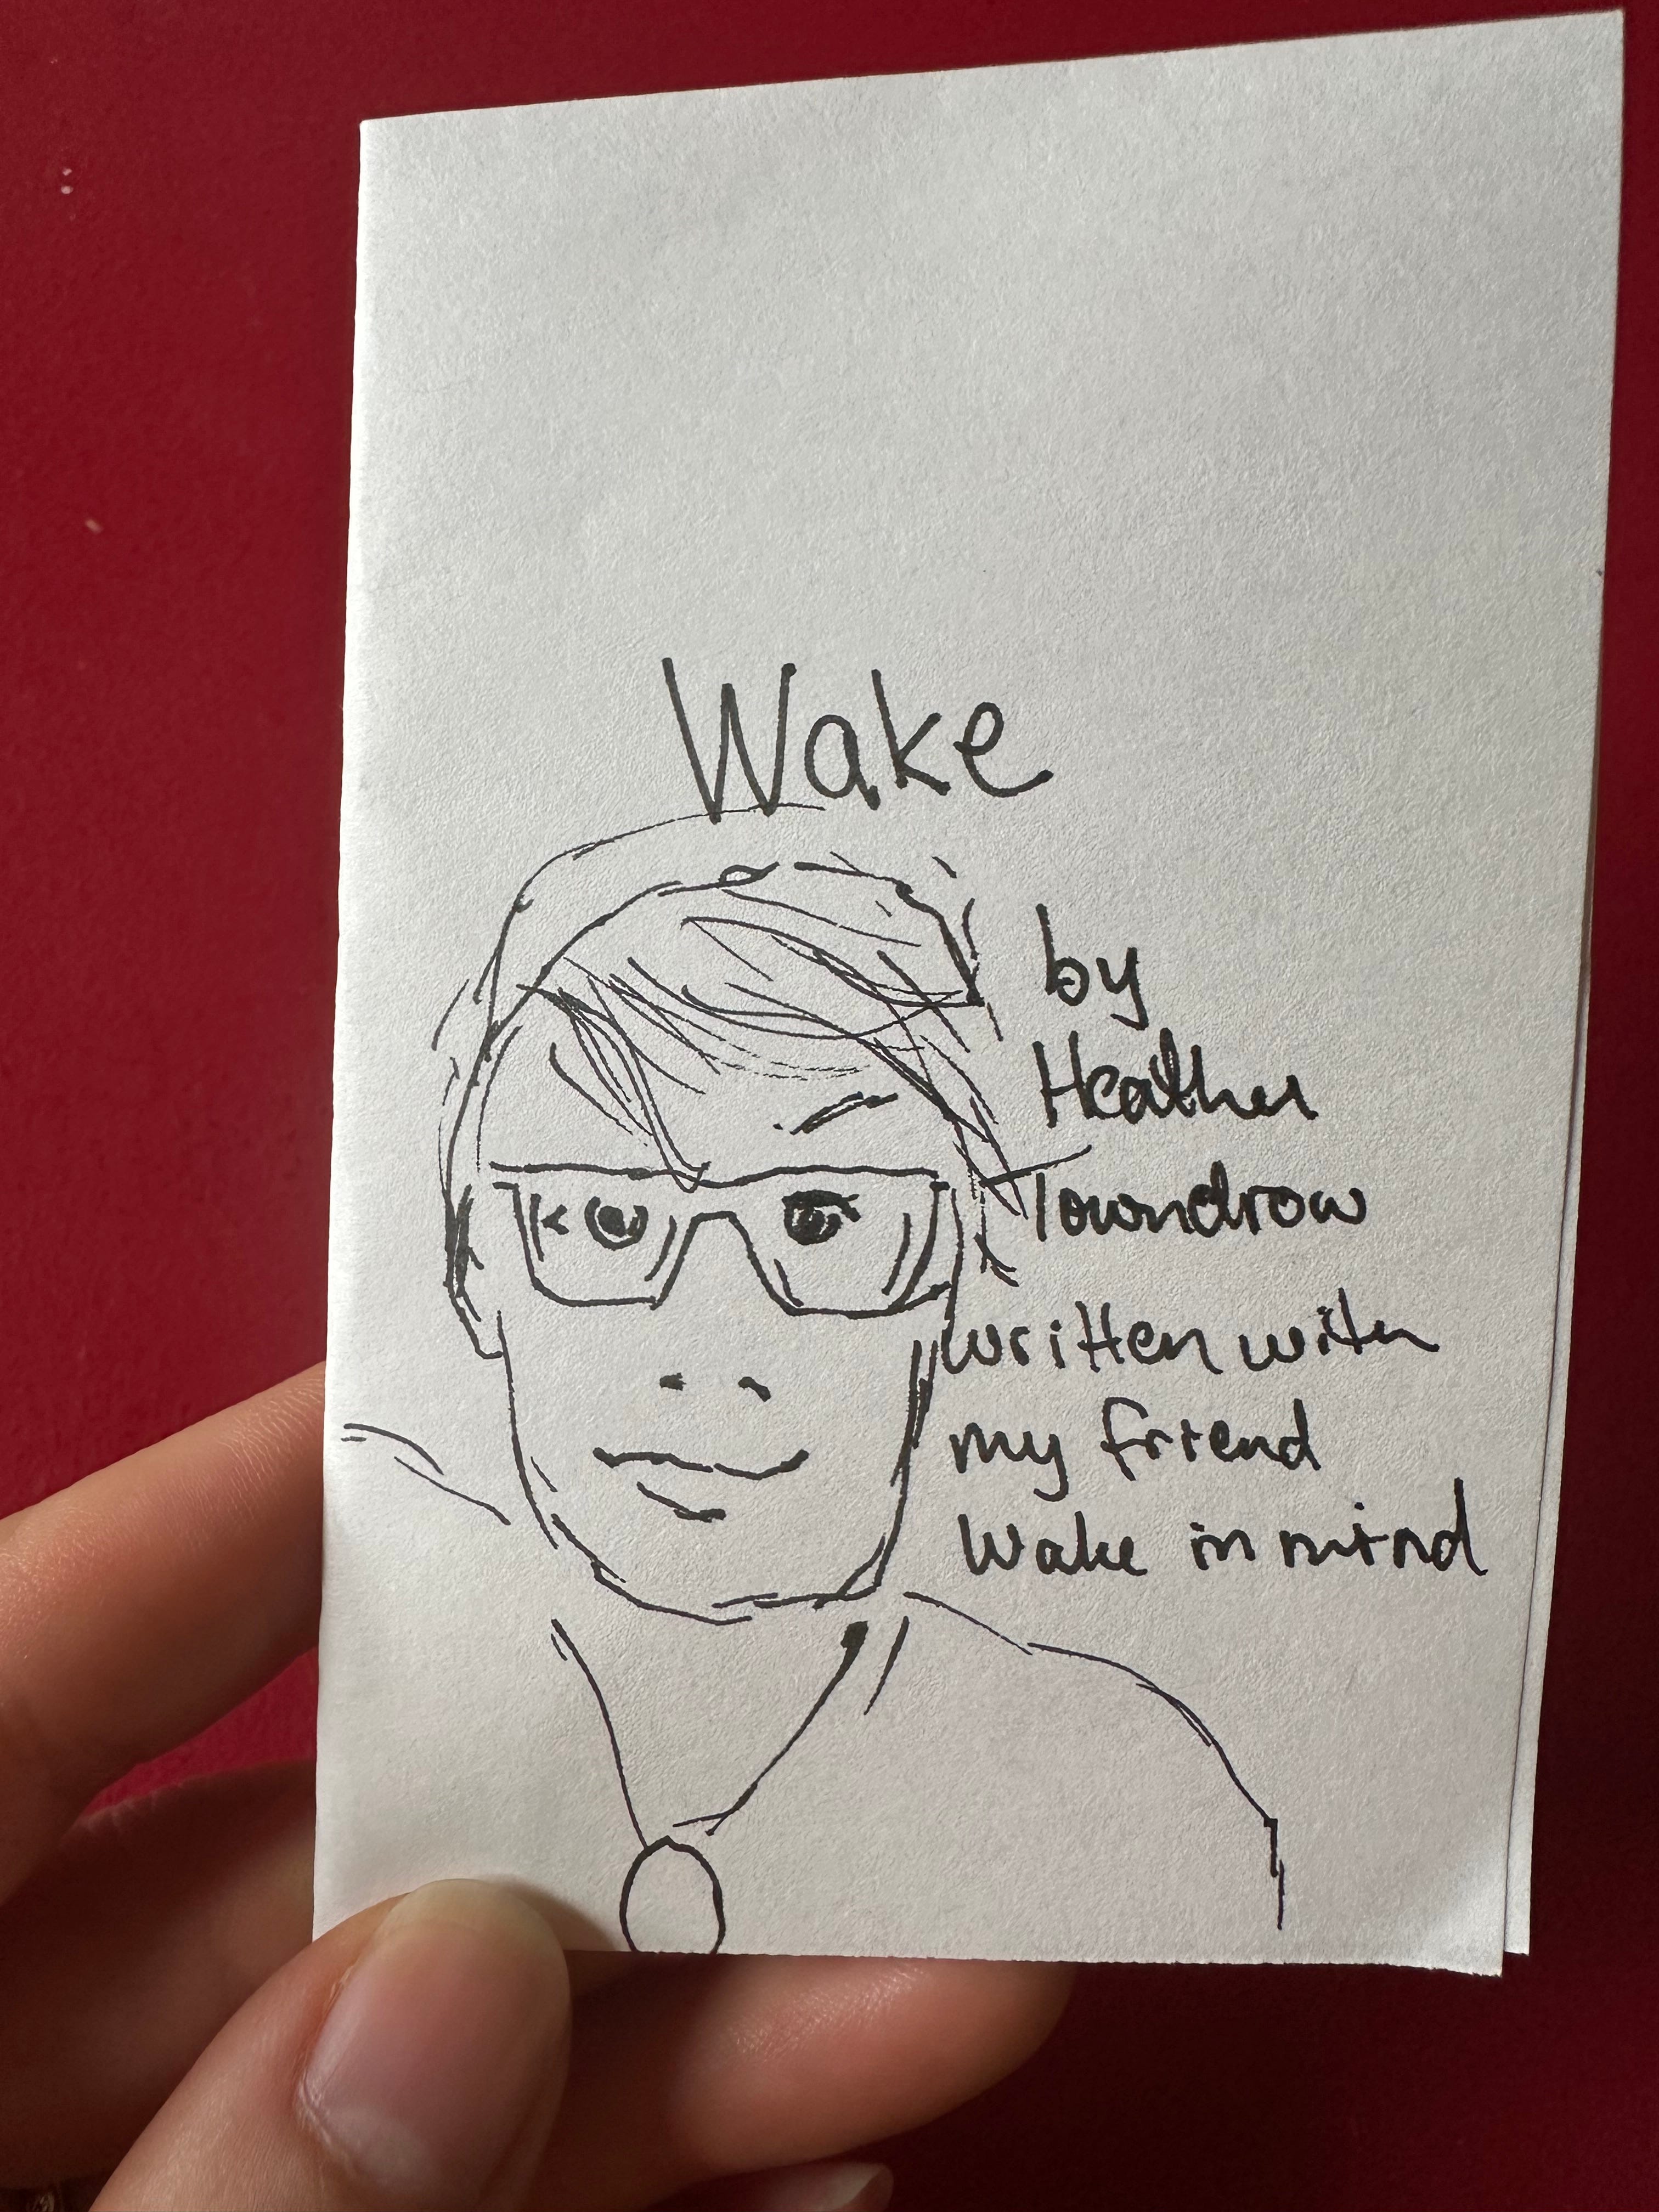 Wake
by
Heather
Towndrow
written with
my friend
Wake in mind